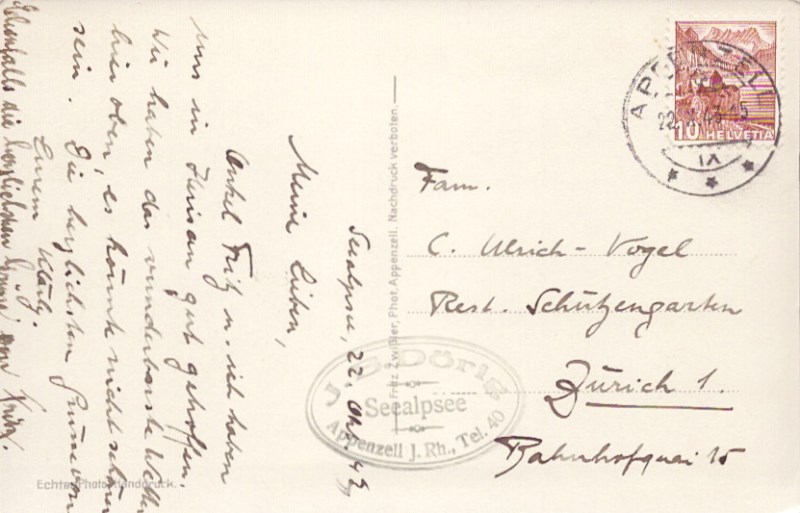 Seealpsee, 22. Okt. 49
Meine Lieben,
Onkel Fritz u. ich haben
uns in Herisau gut getroffen.
Wir haben das wunderbarste Wetter
hier oben, es könnte nicht schöner
sein. Die herzlichsten Grüsse von
Eurem
Ebenfalls die herzlichsten Grüsse von Fritz.
Echte Photo-Handdruck.
Fritz Zwissler, Phot. Appenzell. Nachdruck verboten.
APPENZELL
10 HELVETIA
IX
Fam.
C. Ulrich-Vogel
Rest. Schützengarten
Zürich 1.
Bahnhofquai 15
Dörig
Seealpsee
Appenzell J. Rh., Tel. 40